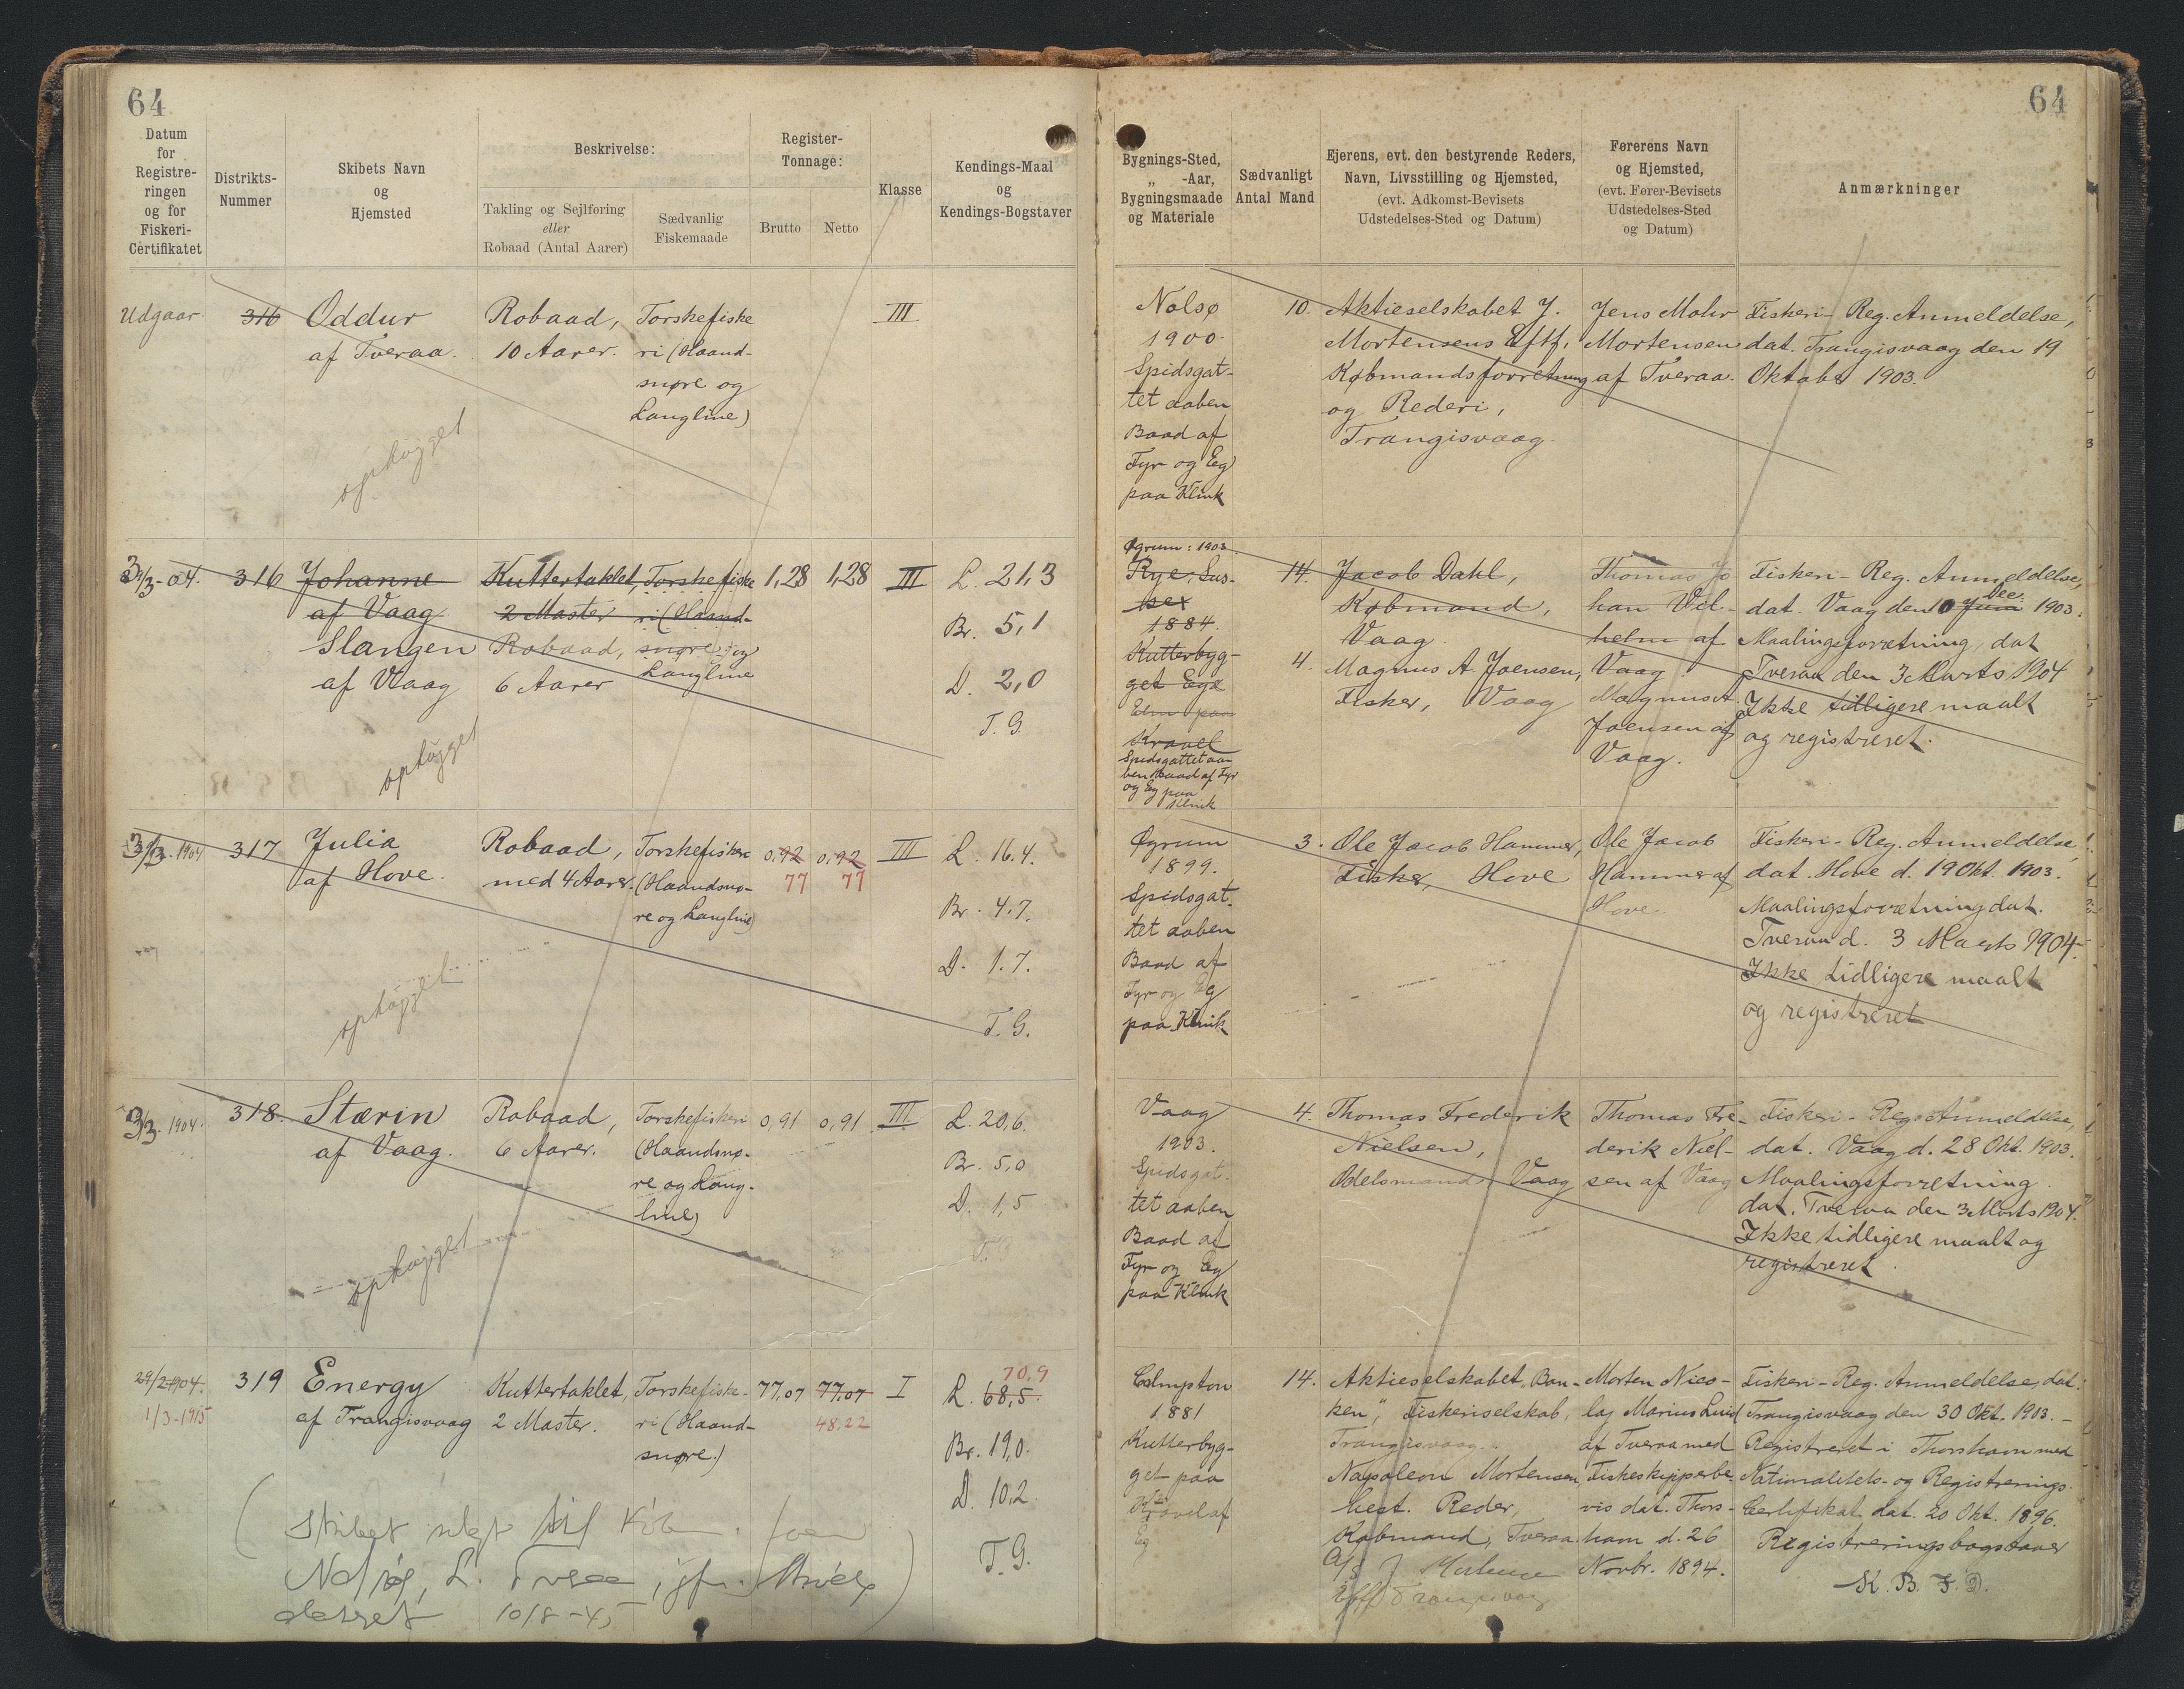 64
64
Datum
for
Registre-
ringen
og for
Fiskeri-
Certifikatet
Distrikts-
Nummer
Skibets Navn
og
Hjemsted
Beskrivelse:
Takling og Sejlføring
eller
Robaad (Antal Aarer)
Sædvanlig
Fiskemaade
Register-
Tonnage:
Brutto
Netto
Klasse
Kendings-Maal
og
Kendings-Bogstaver
Bygnings-Sted,
„ -Aar,
Bygningsmaade
og Materiale
Sædvanligt
Antal Mand
Ejerens, evt. den bestyrende Reders,
Navn, Livsstilling og Hjemsted,
(evt. Adkomst-Bevisets
Udstedelses-Sted og Datum)
Førerens Navn
og Hjemsted,
(evt. Fører-Bevisets
Udstedelses-Sted
og Datum)
Anmærkninger
Udgaar
316
Oddur
af Tveraa.
Robaad,
10 Aarer.
Torskefiske
ri (Haand-
snøre og
Langline)
III
ophugget
Nolsø
1900.
Spidsgat-
tet aaben
Baad af
Fyr og Eg
paa Klink
10.
Aktieselskabet J.
Mortensens Eftf.
Købmandsforretning
og Rederi,
Trangisvaag.
Jens Mohr
Mortensen
af Tveraa.
Fiskeri-Reg. Anmeldelse,
dat. Trangisvaag den 19
Oktober 1903.
3/3-04.
316
Johanne
af Vaag
Slangen
af Vaag
Kuttertaklet,
2 Master
Robaad,
6 Aarer
Torskefiske
ri (Haand-
snøre og
Langline
1,28
1,28
III
L. 21,3
Br. 5,1
D. 2,0
T. G.
ophugget
Øgrum: 1903.
Rye, Sus-
sex
1884.
Kutterbyg-
get Eg &
Elm paa
Kravel
Spidsgattet aa-
ben Baad af Fyr
og Eg paa
Klink
14.
4.
Jacob Dahl,
Købmand,
Vaag.
Magnus A Joensen,
Fisker, Vaag
Thomas Jo
han Vil-
helm af
Vaag
Magnus A
Joensen af
Vaag.
Fiskeri-Reg. Anmeldelse,
dat. Vaag den 10 Juni Dec. 1903.
Maalingsforretning, dat
Tveraa den 3 Marts 1904
Ikke tidligere maalt
og registreret.
3/3. 1904
317
Julia
af Hove.
Robaad,
med 4 Aarer.
Torskefiskeri
(Haandsnø-
re og Langline)
0,92
77
0,92
77
III
L. 16.4.
Br. 4.7.
D. 1.7.
T. G.
ophugget
Øgrum
1899.
Spidsgat-
tet aaben
Baad af
Fyr og Eg
paa Klink
3.
Ole Jacob Hammer,
Fisker, Hove
Ole Jacob
Hammer af
Hove.
Fiskeri-Reg. Anmeldelse,
dat. Hove d. 19 Okt. 1903.
Maalingsforretning dat.
Tveraa d. 3 Marts 1904.
Ikke tidligere maalt
og registreret
3/3. 1904.
318.
Stærin
af Vaag.
Robaad,
6 Aarer.
Torskefiskeri
(Haandsnø-
re og Lang-
line)
0,91
0,91
III
L. 20,6.
Br. 5,0
D. 1,5
T. G
ophugget
Vaag
1903.
Spidsgat-
tet aaben
Baad af
Fyr og Eg
paa Klink
4.
Thomas Frederik
Nielsen,
Odelsmand Vaag
Thomas Fre-
derik Niel-
sen af Vaag
Fiskeri-Reg. Anmeldelse,
dat. Vaag d. 28 Okt. 1903.
Maalingsforretning
dat. Tveraa den 3 Marts 1904.
Ikke tidligere maalt og
registreret.
29/2 1904.
1/3-1915
319
Energy
af Trangisvaag
Kuttertaklet,
2 Master.
Torskefiske-
ri (Haand-
snøre.)
77,07
77,07
48,22
I
70,9
L. 68,5.
Br. 19,0.
D. 10,2.
T. G.
(Skibet solgt til
10/8-45
1881
Kutterbyg-
get paa
Kravel af
Eg
14.
Aktieselskabet „Ban-
ken“, Fiskeriselskab,
Trangisvaag.
Napoleon Mortensen
best. Reder,
Købmand, Tveraa.
A/S J Mortensen
Eftf Trangisvaag
Morten Nico-
laj Marius Luid
af Tveraa med
Fiskeskipperbe-
vis dat. Thors-
havn d. 26
Novbr. 1894.
Fiskeri-Reg. Anmeldelse, dat.
Trangisvaag den 30 Okt. 1903.-
Registreret i Thorshavn med
Nationalitets- og Registrerings-
Certifikat dat. 20 Okt. 1896.
Registreringsbogstaver